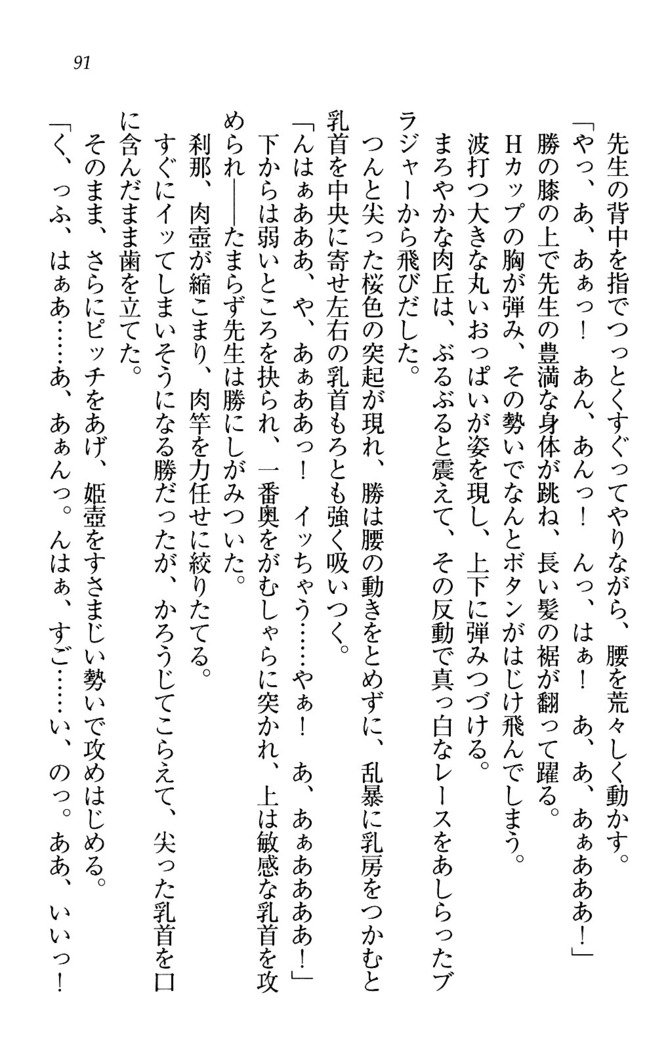 91
先生の背中を指でつっとくすぐってやりながら、腰を荒々しく動かす。
「やっ、あ、あぁっ！　あん、あんっ！　んっ、はぁ！　あ、あ、あぁあああ！」
勝の膝の上で先生の豊満な身体が跳ね、長い髪の裾が翻って躍る。
Hカップの胸が弾み、その勢いでなんとボタンがはじけ飛んでしまう。
波打つ大きな丸いおっぱいが姿を現し、上下に弾みつづける。
まろやかな肉丘は、ぶるぶると震えて、その反動で真っ白なレースをあしらったブ
ラジャーから飛びだした。
つんと尖った桜色の突起が現れ、勝は腰の動きをとめずに、乱暴に乳房をつかむと
乳首を中央に寄せ左右の乳首もろとも強く吸いつく。
「んはぁあああ、や、あぁああっ！　イッちゃう……やぁ！　あ、あぁああああ！」
下からは弱いところを抉られ、一番奥をがむしゃらに突かれ、上は敏感な乳首を攻
められ――たまらず先生は勝にしがみついた。
刹那、肉壺が縮こまり、肉竿を力任せに絞りたてる。
すぐにイッてしまいそうになる勝だったが、かろうじてこらえて、尖った乳首を口
に含んだまま歯を立てた。
そのまま、さらにピッチをあげ、姫壺をすさまじい勢いで攻めはじめる。
「く、っふ、はぁあ……あ、あぁんっ。んはぁ、すご……い、のっ。ああ、いいっ！